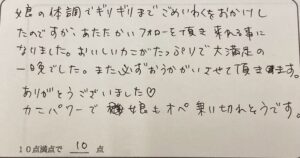 娘の体調でギリギリまでごめいわくをおかけし
たのですが、あたたかいフォローを頂き来れる事に
なりました。おいしいカニがたっぷりで大満足の
一晩でした。また必ずおうかがいさせて頂きます。
ありがとうございました♡
カニパワーで娘もオペ乗り切れそうです。
10点満点で 10 点